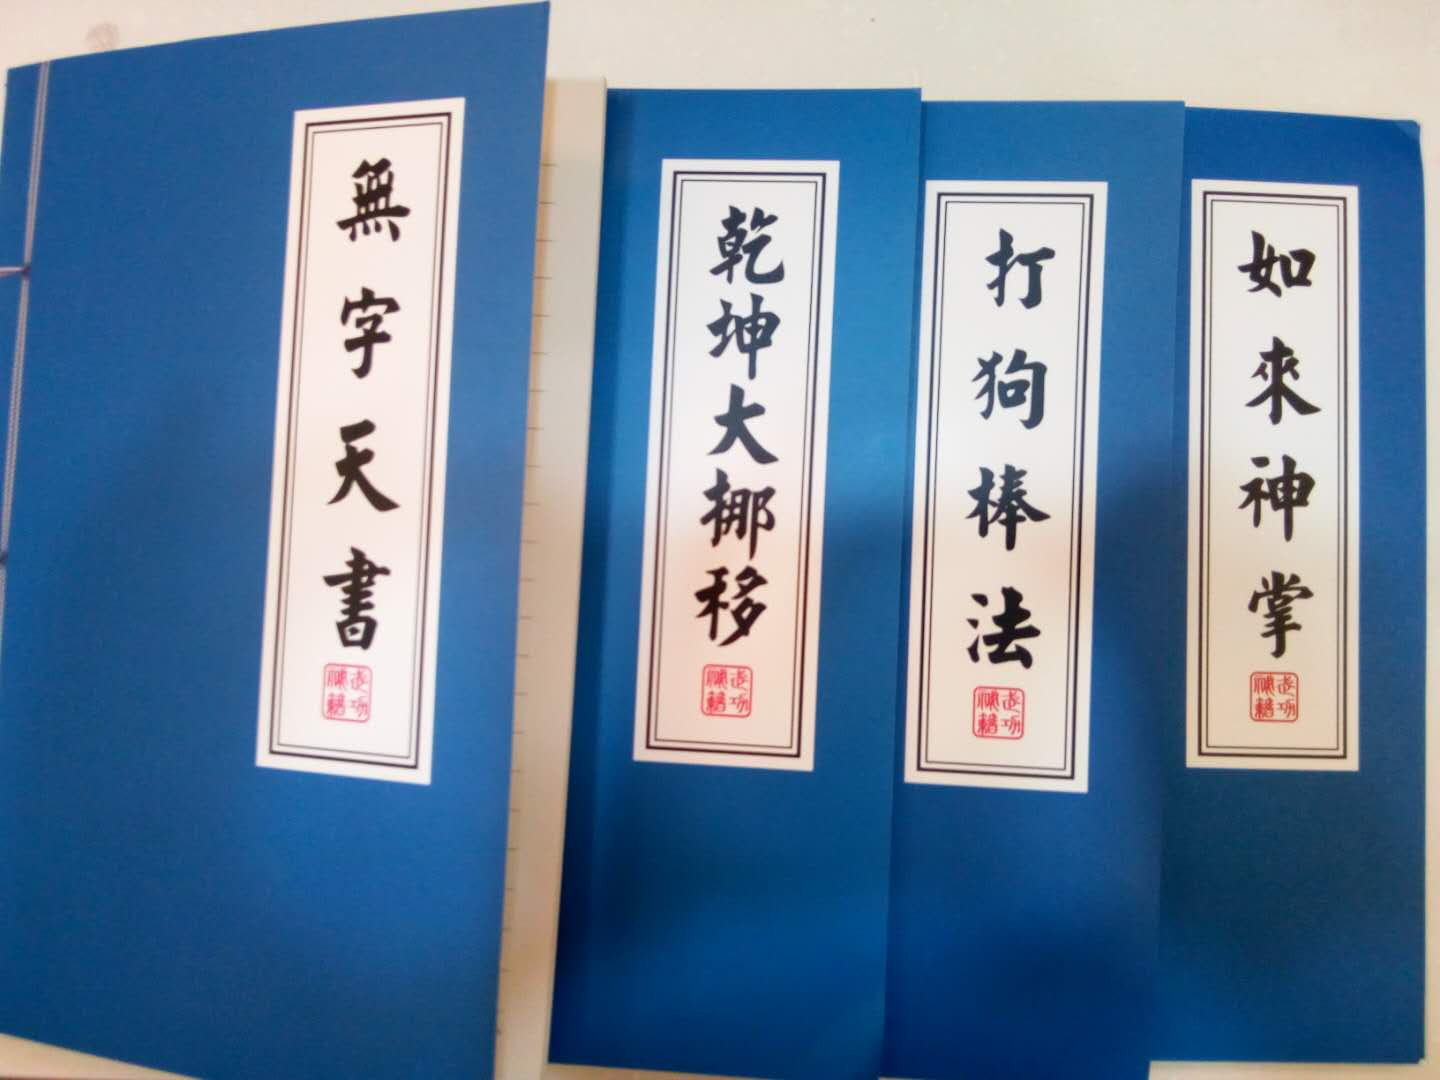 無字天書
武功秘籍
乾坤大挪移
武功秘籍
打狗棒法
武功秘籍
如來神掌
武功秘籍